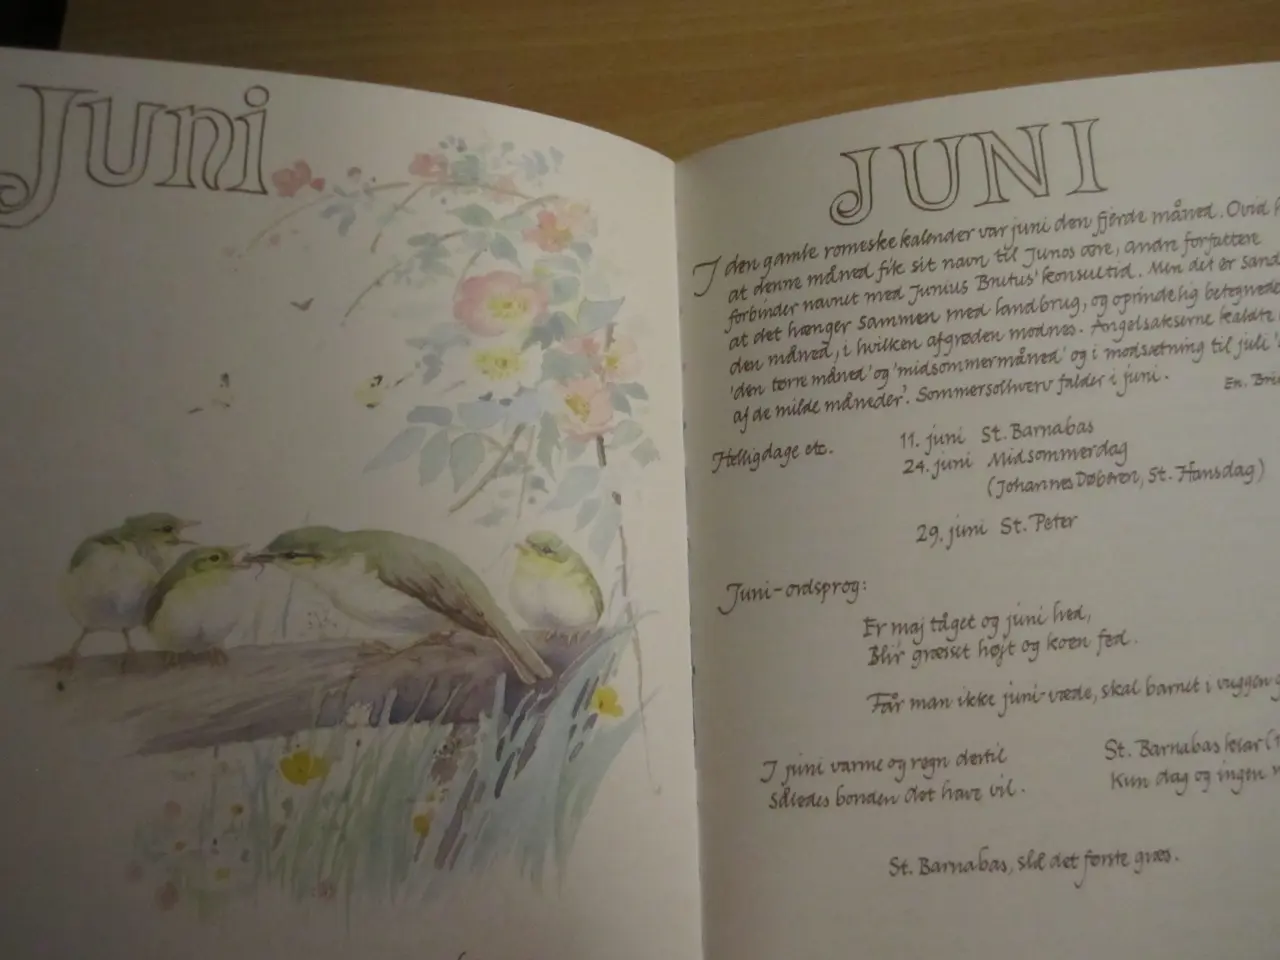 Juni
JUNI
I den gamle romerske kalender var juni den fjerde måned. Ovid
at denne måned fik sit navn til Junos ære, andre forfattere
forbinder navnet med Junius Brutus' konsultid. Men det er sand
at det hænger sammen med landbrug, og oprindelig betegnede
den måned, i hvilken afgrøden modnes. Angelsakserne kaldte
'den tørre måned' og 'midsommermåned' og i modsætning til juli
af de milde måneder'. Sommersolhverv falder i juni.
En. Bri
Helligdage etc.
11. juni St. Barnabas
24. juni Midsommerdag
(Johannes Døberen, St. Hansdag)
29. juni St. Peter
Juni-ordsprog:
Er maj tåget og juni hed,
Blir græsset højt og koen fed.
Får man ikke juni-væde, skal barnet i vuggen
I juni varme og regn dertil
således bonden det have vil.
St. Barnabas klar
Kun dag og ingen
St. Barnabas, slå det første græs.